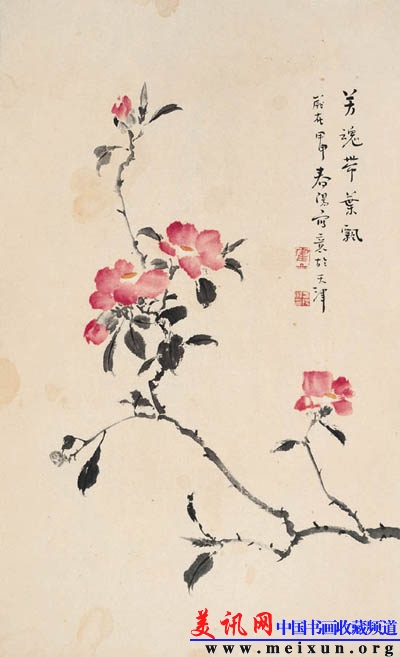 芳魂带葉飄
歲在甲申春湯寫意於天津
美讯网
中国书画收藏频道
www.meixun.org